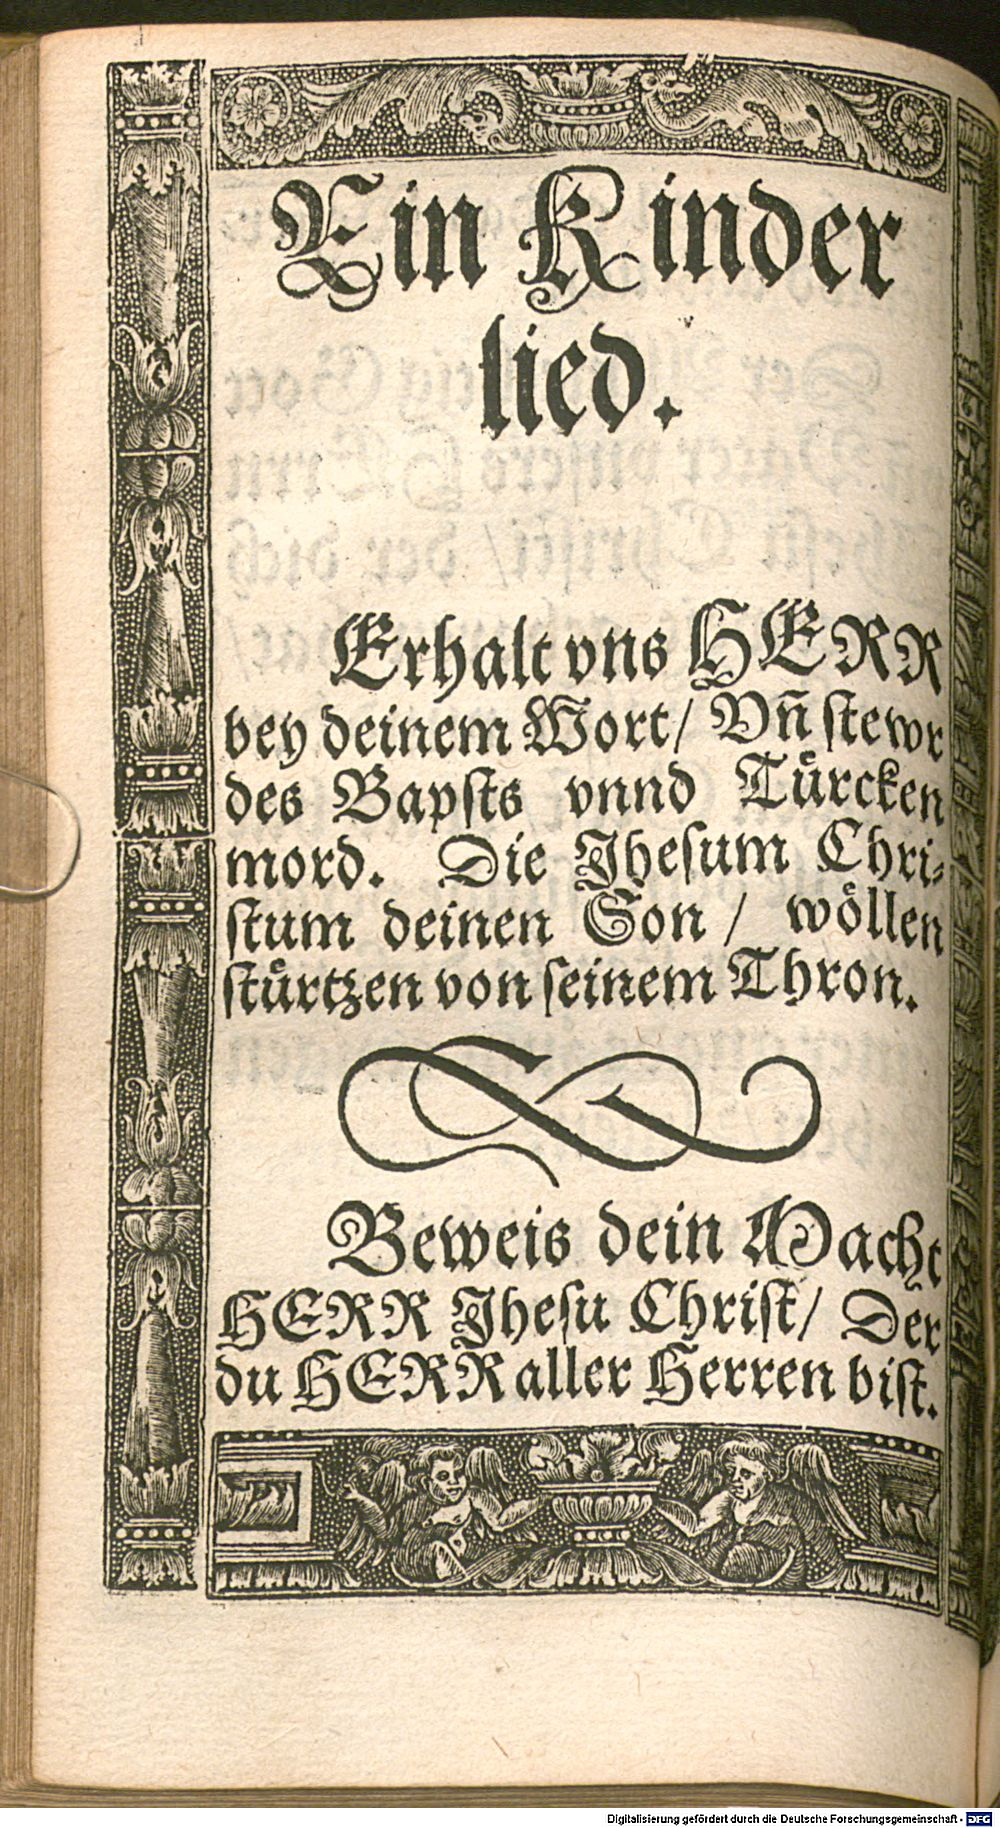 Ein Kinder
lied.
Erhalt vns HERR
bey deinem Wort / Vñ stewr
des Bapsts vnnd Tůrcken
mord. Die Jhesum Chri⸗
stum deinen Son / wöllen
stůrtzen von seinem Thron.
Beweis dein Macht
HERR Jhesu Christ / Der
du HERR aller Herren bist.
Digitalisierung gefördert durch die Deutsche Forschungsgemeinschaft - DFG